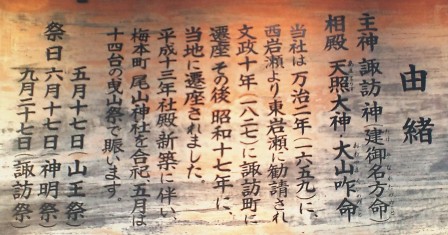 由緒
主神 諏訪神(建御名方命)
相殿 天照大神 大山咋命
当社は万治二年(一六五九)に、
西岩瀬より東岩瀬に勧請され
文政十年(一八二七)に諏訪町に
遷座その後昭和十七年に、
当地に遷座されました。
平成十三年社殿新築に伴い、
梅本町尾山神社を合祀、五月は
十四台の曳山祭で賑います。
祭日 五月十七日(山王祭)
六月十七日(神明祭)
九月二十七日(諏訪祭)